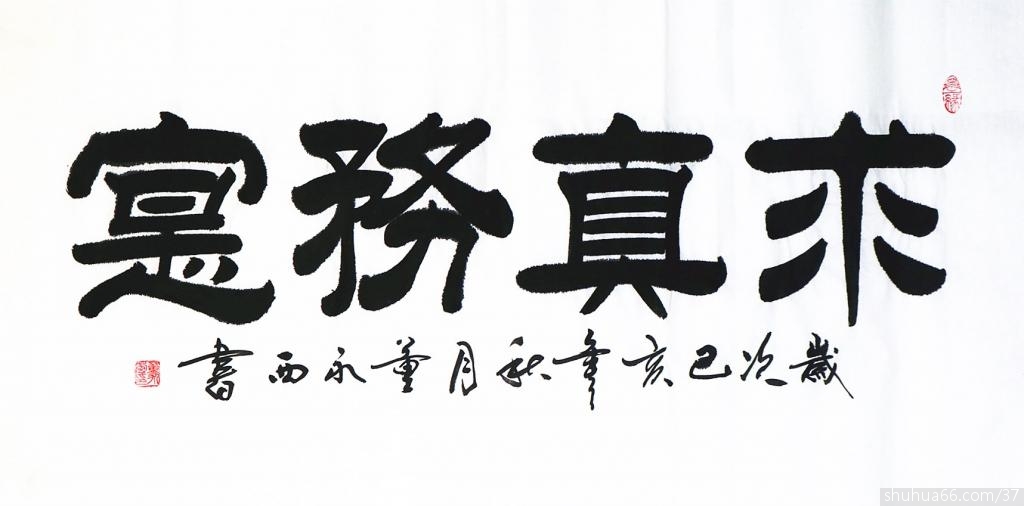 求真務寔
歲次己亥年秋月董永西書
shuhua66.com/37